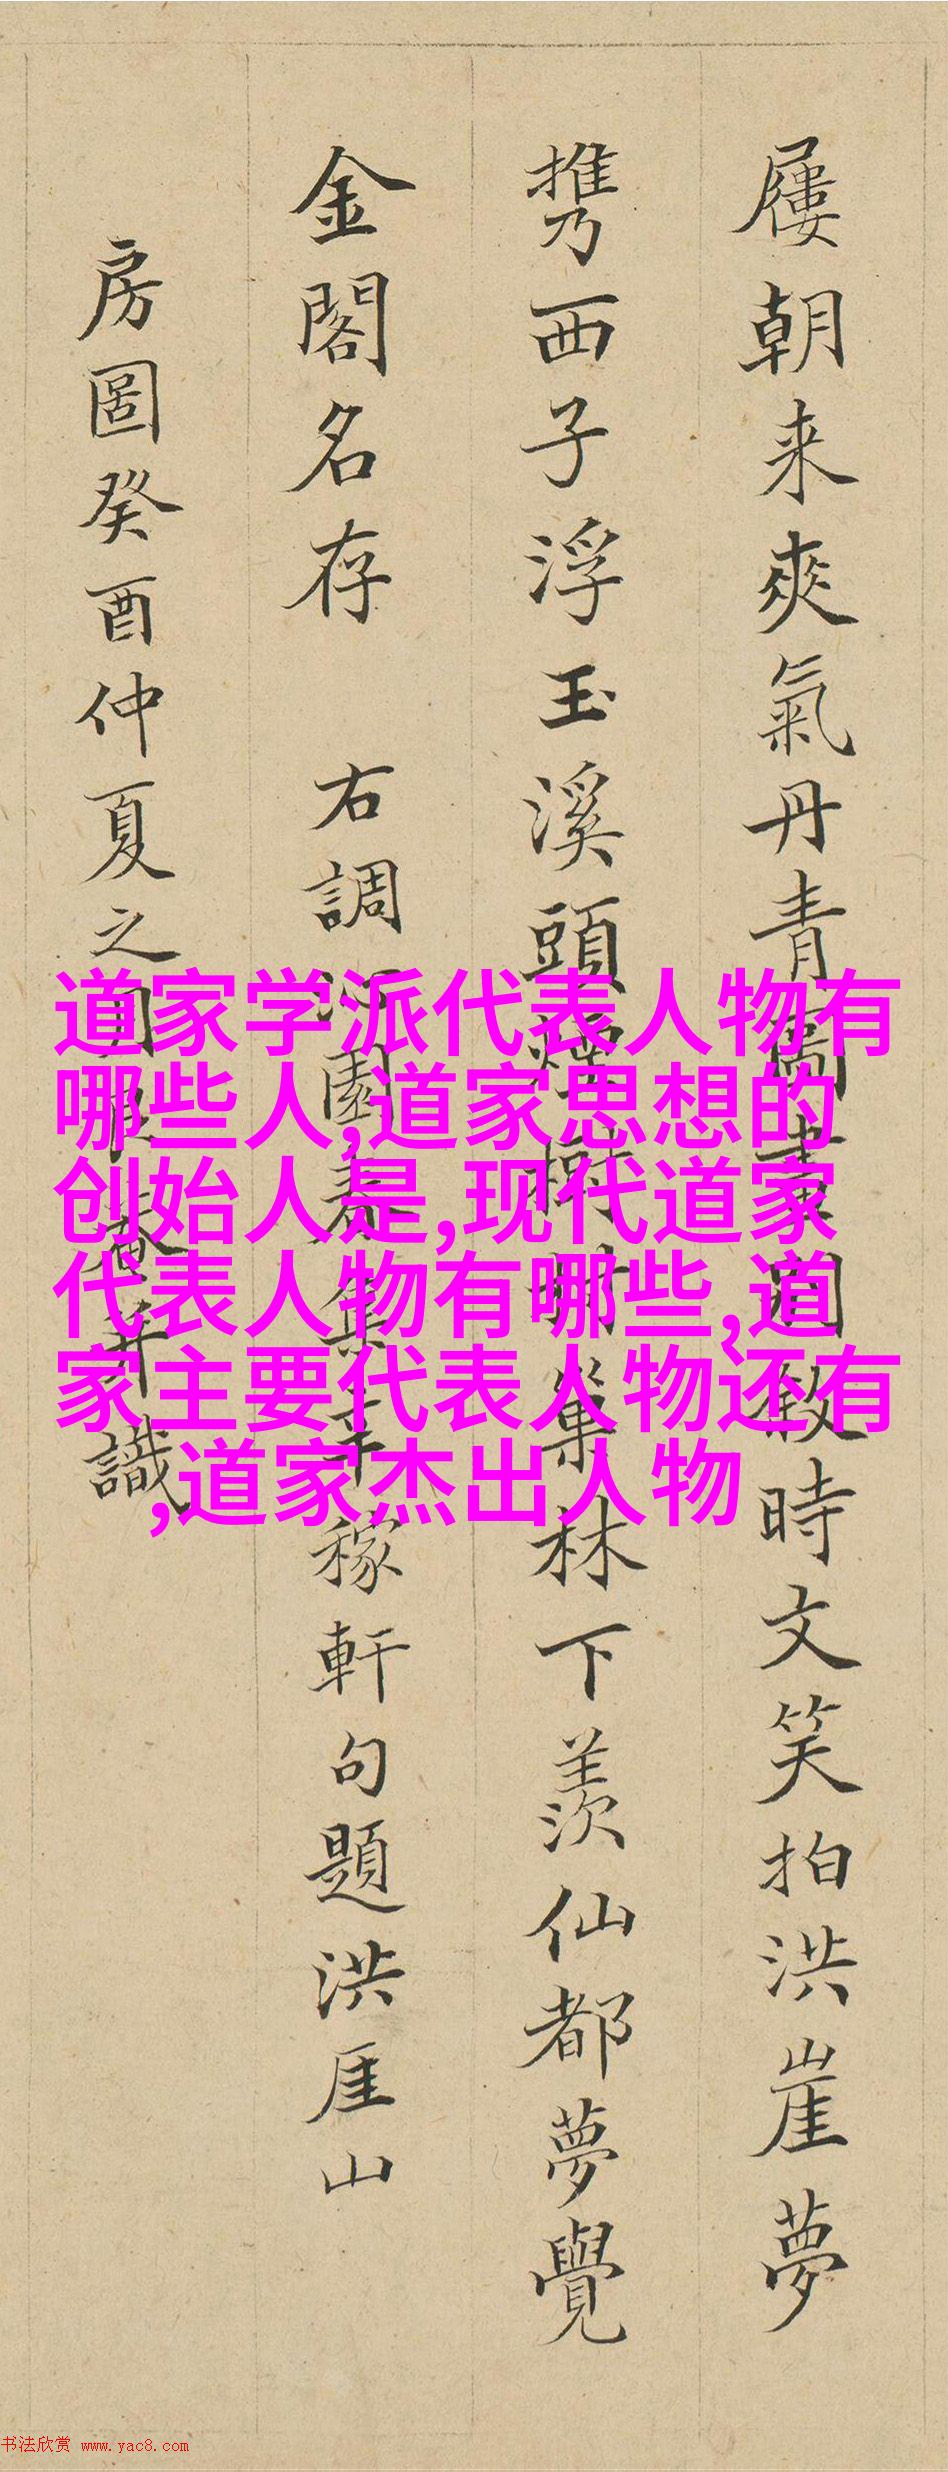 屢朝来爽氣丹青時文笑拍洪崖夢
携西子浮玉溪頭煙樹巢林下羨仙都夢覺
金閣名存 右調沁園春集辛稼軒句題洪厓山
房圖癸酉仲夏之月菴并識
道家学派代表人物有
哪些人,道家思想的
创始人是,现代道家
代表人物有哪些,道
家主要代表人物还有
,道家杰出人物
书法欣赏 www.yac8.com